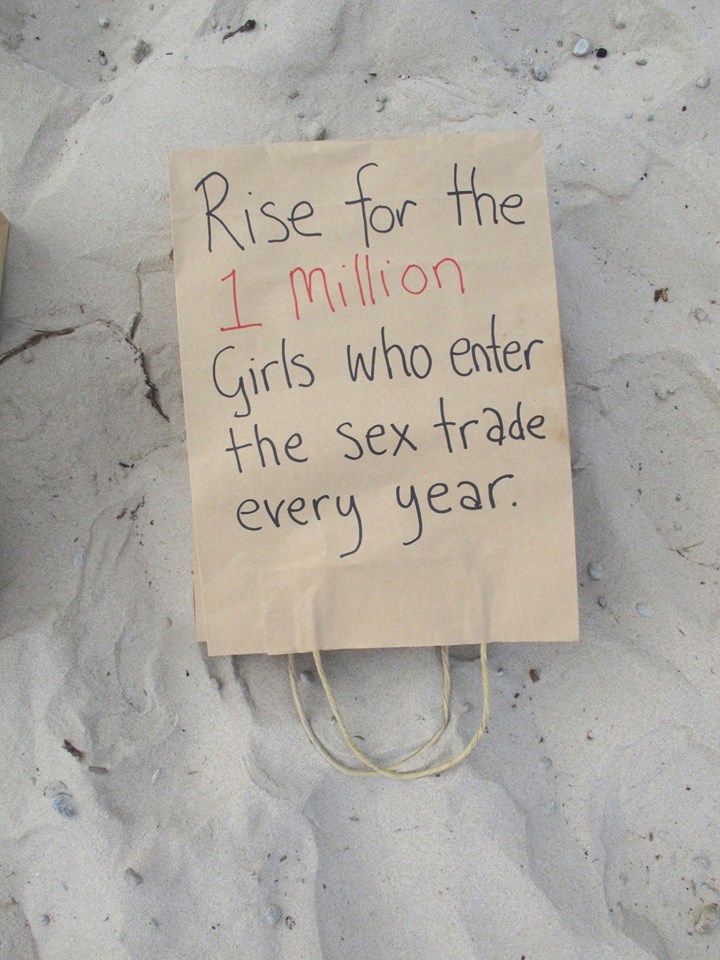 Rise for the
1 Million
Girls who enter
the sex trade
every year.